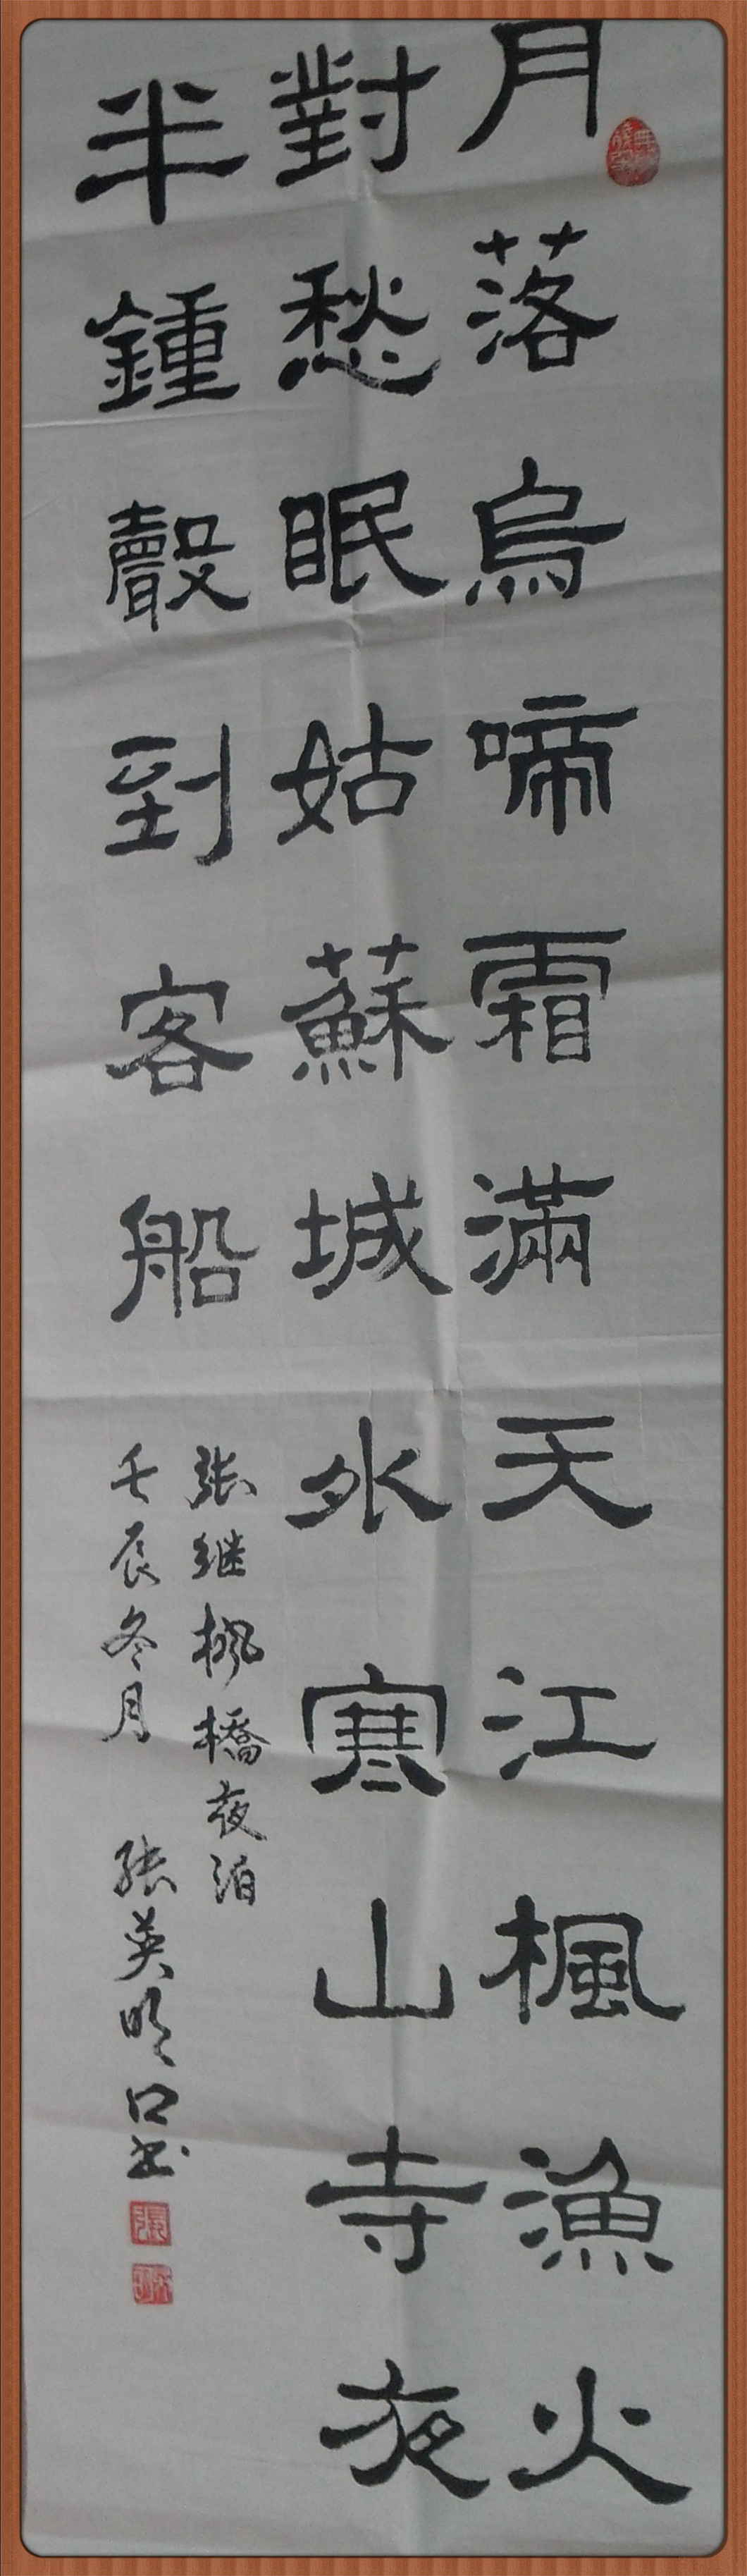 月落烏啼霜滿天江楓漁火
對愁眠姑蘇城外寒山寺夜
半鍾聲到客船
张继枫橋夜泊
壬辰冬月 张英明口书